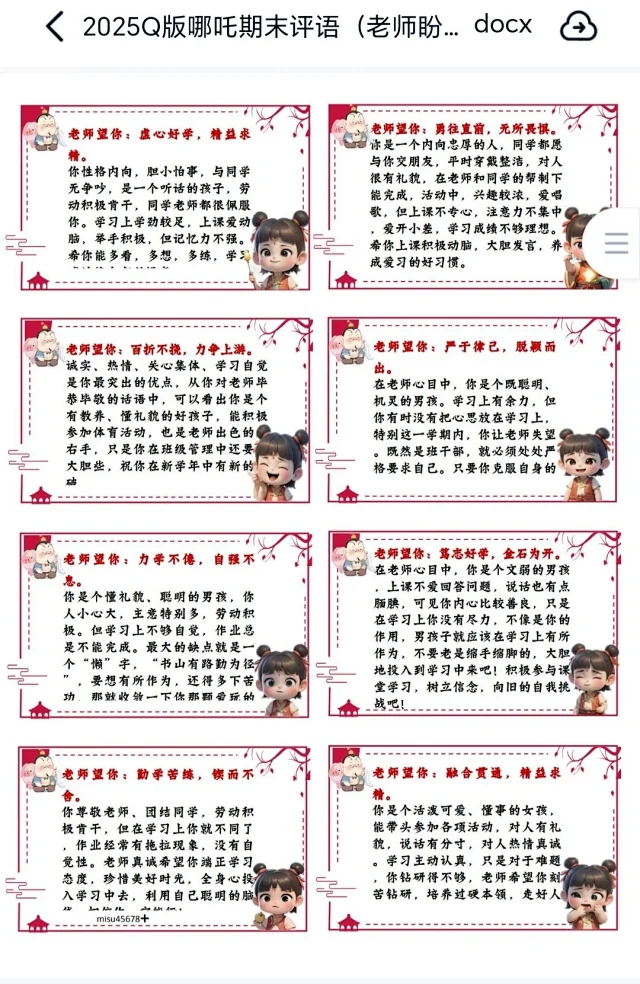 2025Q版哪吒期末评语（老师盼... docx
老师望你：虚心好学，精益求
精。
你性格内向，胆小怕事，与同学
无争吵，是一个听话的孩子，劳
动积极肯干，同学老师都很佩服
你。学习上学劲较足，上课爱动
脑，举手积极，但记忆力不强。
希你能多看，多想，多练，学习
老师望你：勇往直前，无所畏惧。
你是一个内向忠厚的人，同学都愿
与你交朋友，平时穿戴整洁，对人
很有礼貌，在老师和同学的帮制下
能完成，活动中，兴趣较浓，爱唱
歌，但上课不专心，注意力不集中
，爱开小差，学习成绩不够理想。
希你上课积极动脑，大胆发言，养
成爱习的好习惯。
老师望你：百折不挠，力争上游。
诚实、热情、关心集体、学习自觉
是你最突出的优点，从你对老师毕
恭毕敬的话语中，可以看出你是个
有教养、懂礼貌的好孩子，能积极
参加体育活动，也是老师出色的
右手，只是你在班级管理中还要
大胆些，祝你在新学年中有新的
破
老师望你：严于律己，脱颖而
出。
在老师心目中，你是个既聪明、
机灵的男孩。学习上有余力，但
你有时没有把心思放在学习上，
特别这一学期内，你让老师失望
。既然是班干部，就必须处处严
格要求自己。只要你克服自身的
老师望你：力学不倦，自强不
息。
你是个懂礼貌、聪明的男孩，你
人小心大，主意特别多，劳动积
极。但学习上不够自觉，作业总
是不能完成。最大的缺点就是一
个“懒”字，“书山有路勤为径
”，要想有所作为，还得多下苦
功，那就收敛一下你那颗爱玩的
老师望你：笃志好学，金石为开。
在老师心目中，你是个文弱的男孩
，上课不爱回答问题，说话也有点
腼腆，可见你内心比较善良，只是
在学习上你没有尽力，不像是你的
作用，男孩子就应该在学习上有所
作为，不要老是缩手缩脚的，大胆
地投入到学习中来吧！积极参与课
堂学习，树立信念，向旧的自我挑
战吧！
老师望你：勤学苦练，锲而不
舍。
你尊敬老师、团结同学，劳动积
极肯干，但在学习上你就不同了
，作业经常有拖拉现象，没有自
觉性。老师真诚希望你端正学习
态度，珍惜美好时光，全身心投
入学习中去，利用自己聪明的脑
misu45678+
老师望你：融合贯通，精益求
精。
你是个活泼可爱、懂事的女孩，
能带头参加各项活动，对人有礼
貌，说话有分寸，对人热情真诚
。学习主动认真，只是对于难题
，你钻研得不够，老师希望你刻
苦钻研，培养过硬本领，走好人